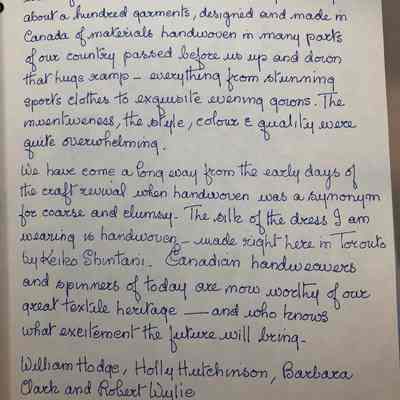 about a hundred garments, designed and made in
Canada of materials handwoven in many parts
of our country passed before us up and down
that huge ramp – everything from stunning
sports clothes to exquisite evening gowns. The
inventiveness, the style, colour & quality were
quite overwhelming.
We have come a long way from the early days of
the craft revival when handwoven was a synonym
for coarse and clumsy. The silk of the dress I am
wearing is handwoven – made right here in Toronto
by Keiko Shintani. Canadian handweavers
and spinners of today are now worthy of our
great textile heritage — and who knows
what excitement the future will bring.
William Hodge, Holly Hutchinson, Barbara
Clark and Robert Wylie